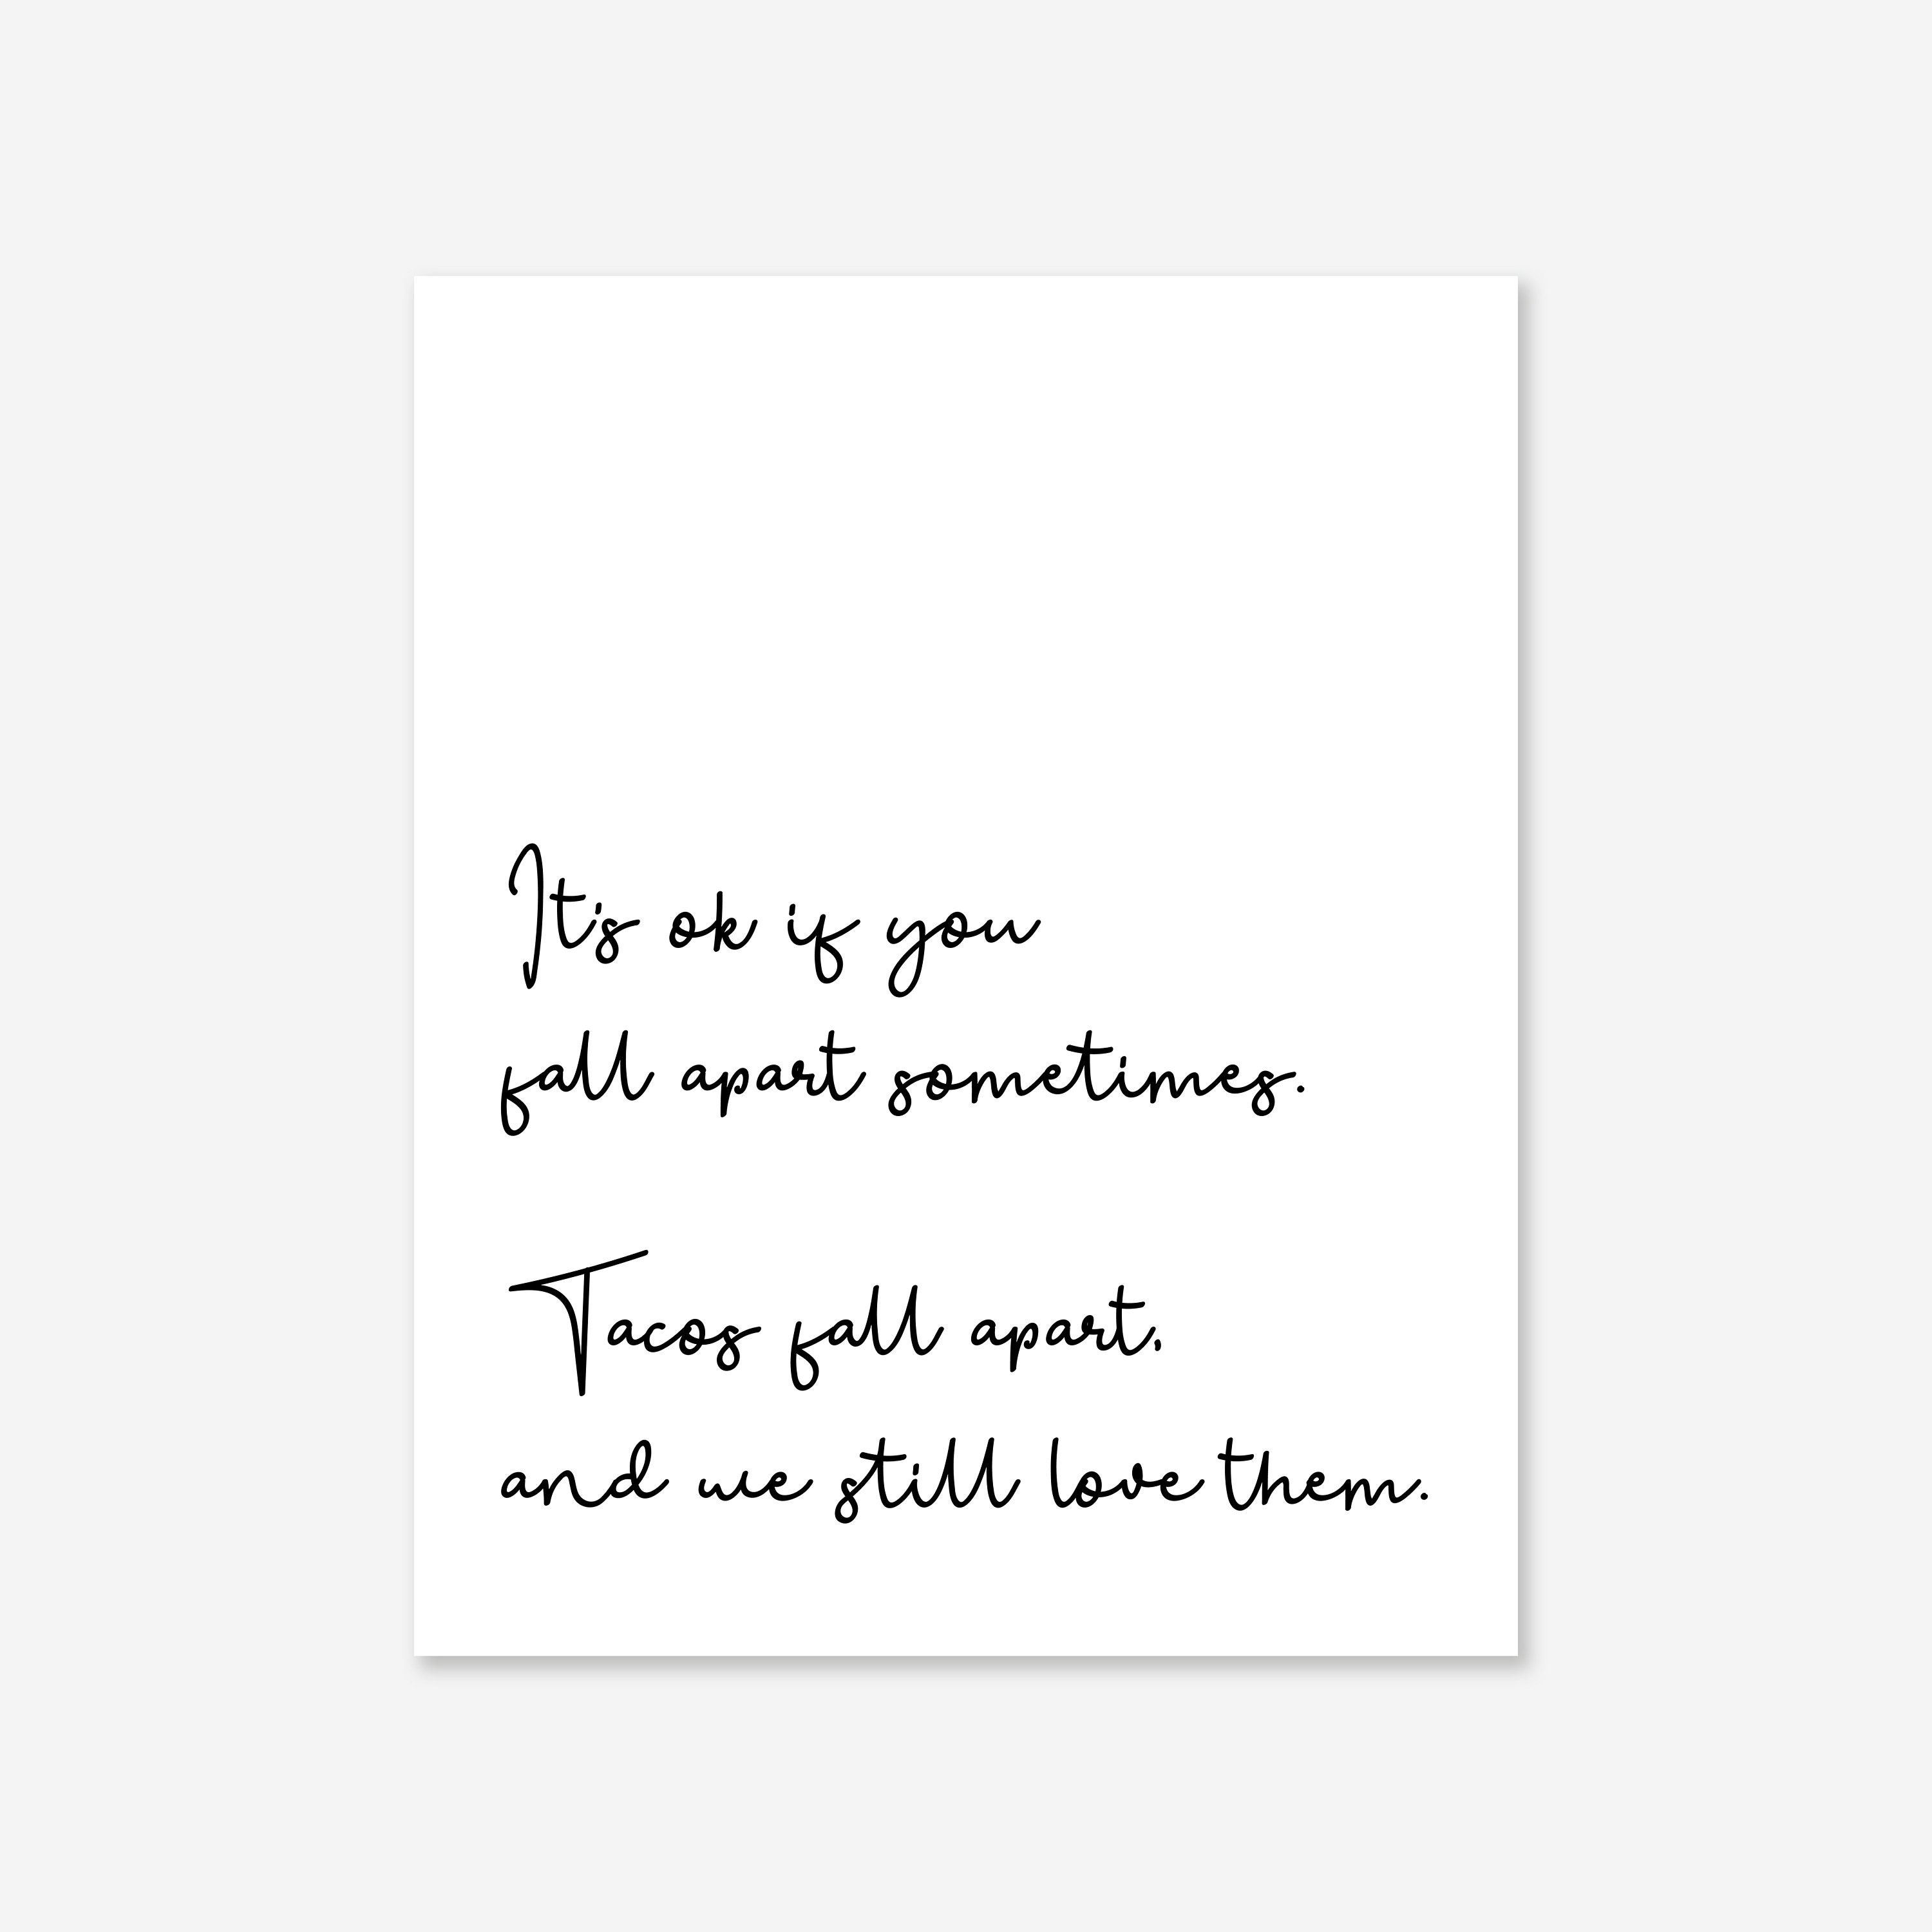 It's ok if you
fall apart sometimes.
Tacos fall apart,
and we still love them.